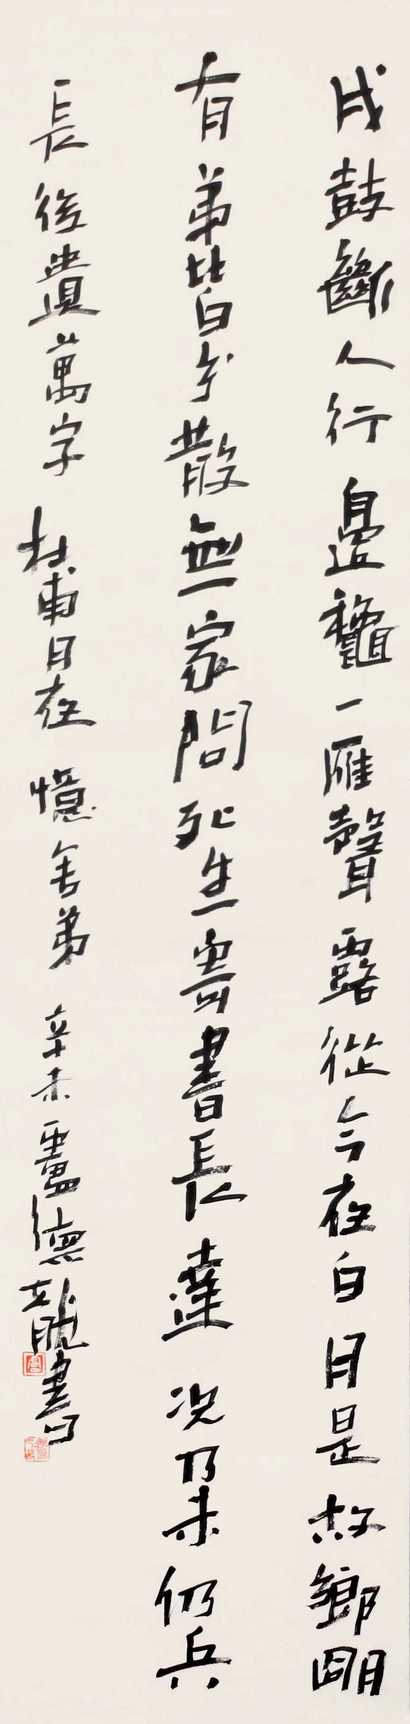 戍鼓斷人行邊龝一雁聲露從今夜白月是故鄉朙
有弟皆分散無家問死生寄書長達況乃未休兵
長後遺萬字 杜甫月夜憶舍弟 辛未盧德龍書